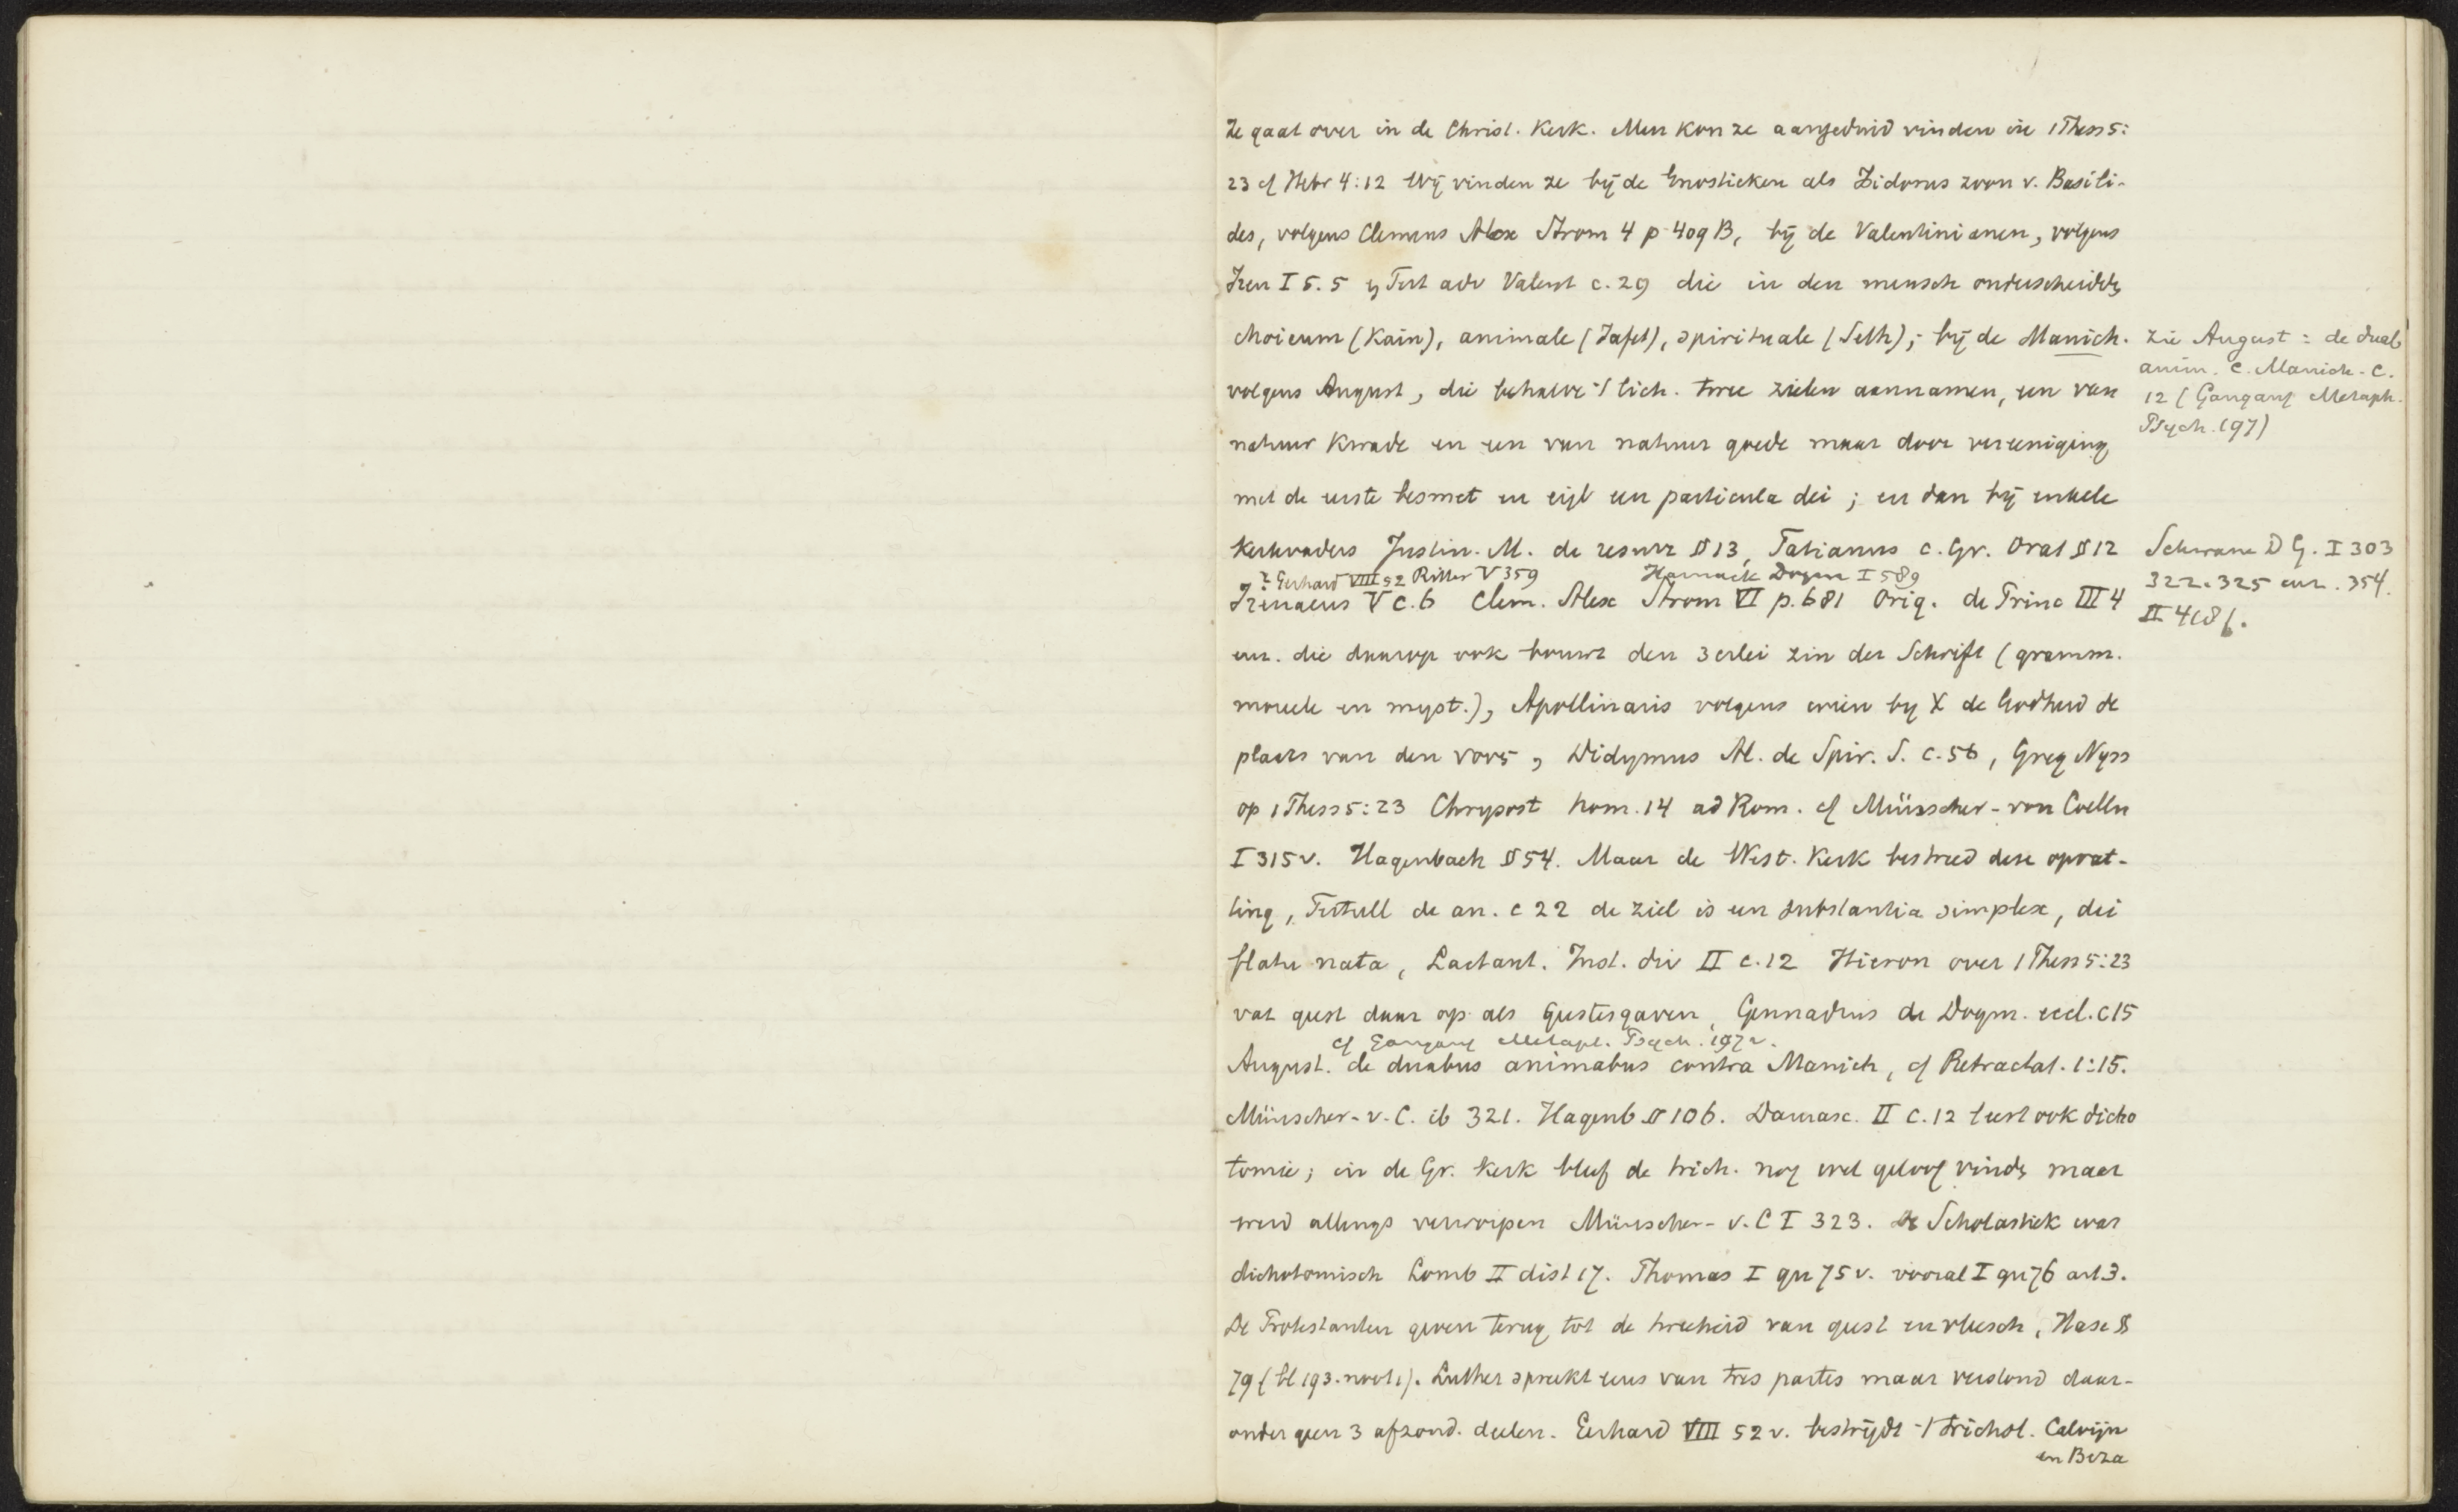 Ze gaat over in de Christ. Kerk. Men kon ze aangeduid vinden in 1 Thess 5:
23 cf Hebr 4:12 Wij vinden ze bij de Gnostieken als Isidorus zoon v. Basili-
des, volgens Clemens Alex Strom 4 p 409 B, bij de Valentinianen, volgens
Iren I 5. 5 en Tert adv Valent c. 29 die in den mensch onderscheidden
choicum (Kain), animale (Jafet), spirituale (Seth); bij de Manich.
zie August: de duab
anim. c. Manich. c.
12 (Gangauf Metaph.
Psych. 197)
volgens August, die behalve 't lich. twee zielen aannamen, een van
natuur kwade en een van natuur goede maar door vereeniging
met de eerste besmet en eigl een particula dei; en dan bij enkele
Kerkvaders Justin. M. de resurr § 13, Tatianus c. Gr. Orat § 12
Schwane D G. I 303
322. 325 enz. 354.
II 418f.
? Gerhard VIII 52 Ritter V 359 Harnack Dogm I 589
Irenaeus V c. 6 Clem. Alex Strom VI p. 681 Orig. de Princ III 4
enz. die daarop ook bouwt den 3 erlei zin der Schrift (gramm.
moreele en myst.), Apollinaris volgens wien by X de Godheid de
plaats van den νους, Didymus Al. de Spir. S. c. 56, Greg Nyss
op 1 Thess 5:23 Chrysost hom. 14 ad Rom. cf Münscher - von Coelln
I 315 v. Hagenbach § 54. Maar de West. Kerk bestreed deze opvat-
ting, Tertull de an. c 22 de ziel is een substantia simplex, dei
flatu nata, Lactant. Inst. div II c. 12 Hieron over 1 Thess 5:23
vat geest daar op als geestesgaven, Gennadius de Dogm. eccl. c 15
cf Gangauf Metaph. Psych. 197 v.
August. de duabus animabus contra Manich, cf Retractat. 1:15.
Münscher - v. C. ib 321. Hagenb § 106. Damasc. II c. 12 leert ook dicho
tomie; in de Gr. Kerk bleef de trich. nog wel geloof vinden maar
werd allengs verworpen Münscher - v. C I 323. De Scholastiek was
dichotomisch Lomb II dist 17. Thomas I qu 75 v. vooral I qu 76 art 3.
De Protestanten geven terug tot de tweeheid van geest en vleesch, Hase §
79 (bl 193. noot 1). Luther spreekt eens van tres partes maar verstond daar-
onder geen 3 afzond. deelen. Gerhard VIII 52 v. bestrijdt 't trichot. Calvijn
en Beza